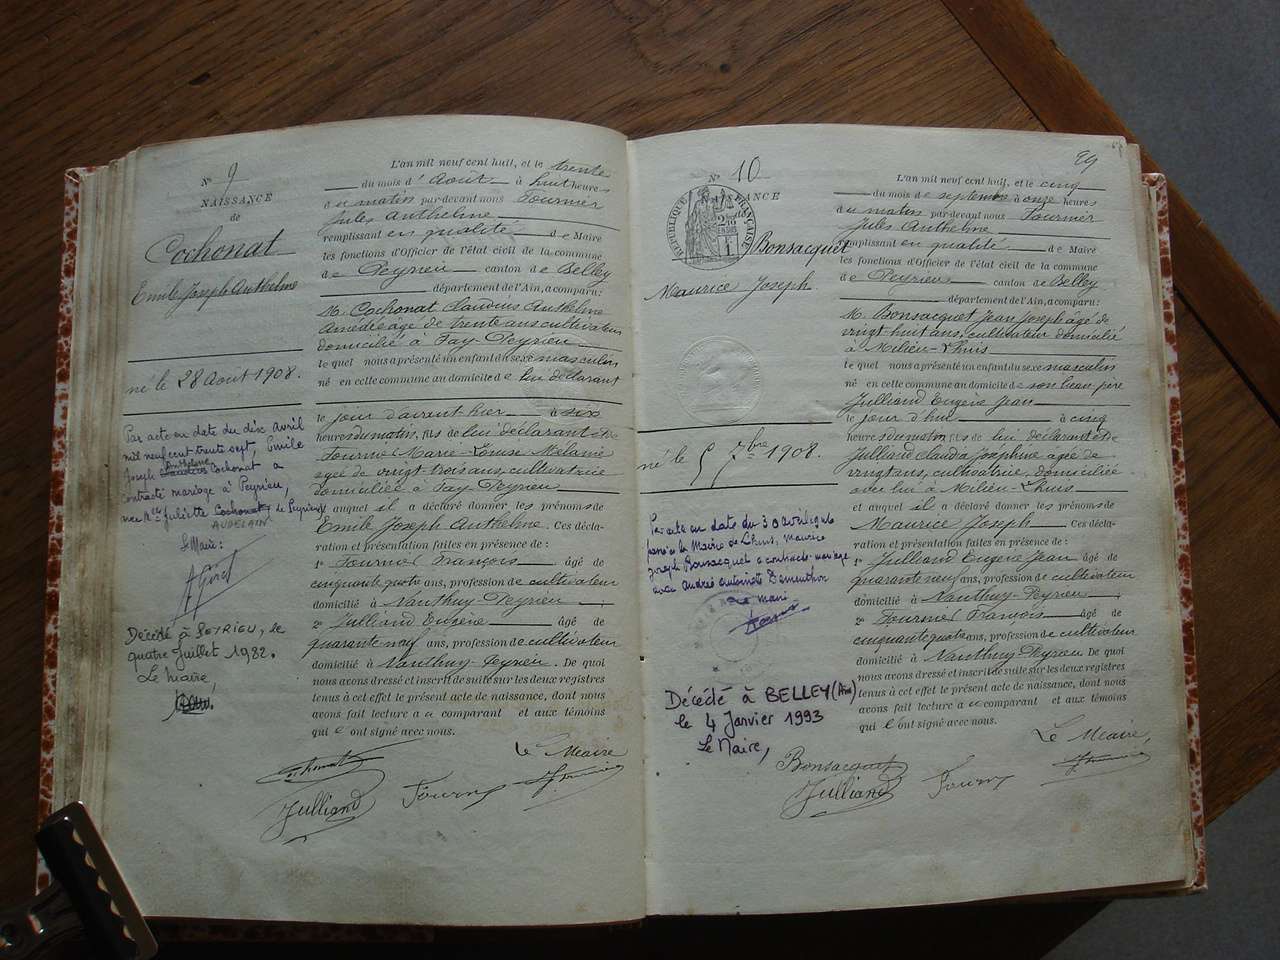 N° 9
NAISSANCE
de
Cochonat
Emile Joseph Anthelme
né le 28 Août 1908.
Par acte en date du dix avril
mil neuf cent trente sept, Emile
Joseph Anthelme Cochonat a
contracté mariage à Peyrieu,
avec Mlle Juliette Cochonat de Peyrieu
AUDELAIN
Le Maire:
Décédé à PEYRIEU, le
quatre Juillet 1982.
Le Maire,
L'an mil neuf cent huit, et le trente
du mois d'Août à huit heures
du matin par-devant nous Fournier
Jules Anthelme
remplissant en qualité de Maire
les fonctions d'Officier de l'état civil de la commune
de Peyrieu canton de Belley
département de l'Ain, a comparu:
M. Cochonat Claudius Anthelme
Amédée âgé de trente ans cultivateur
domicilié à Fay-Peyrieu
lequel nous a présenté un enfant du sexe masculin
né en cette commune au domicile de lui déclarant
le jour d'avant hier à six
heures du matin, fils de lui déclarant et de
Fournier Marie-Louise Mélanie
agée de vingt-trois ans, cultivatrice
domiciliée à Fay-Peyrieu
et auquel il a déclaré donner les prénoms de
Emile Joseph Anthelme. Ces décla-
ration et présentation faites en présence de :
1° Fournier François âgé de
cinquante quatre ans, profession de cultivateur
domicilié à Nanthuy-Peyrieu
2° Julliand Eugène âgé de
quarante neuf ans, profession de cultivateur
domicilié à Nanthuy-Peyrieu. De quoi
nous avons dressé et inscrit de suite sur les deux registres
tenus à cet effet le présent acte de naissance, dont nous
avons fait lecture au comparant et aux témoins
qui l'ont signé avec nous.
Le Maire
Cochonat
Julliand
Fournier
29
N° 10
NAISSANCE
RÉPUBLIQUE FRANÇAISE
Bonsacquet
Maurice Joseph
né le 5 7bre 1908.
Par acte en date du 30 avril
Mairie de Lhuis, Maurice
Joseph Bonsacquet a contracté mariage
avec Andrée Antoinette Dementhon
Le Maire
Décédé à BELLEY (Ain)
le 4 Janvier 1993
Le Maire,
L'an mil neuf cent huit, et le cinq
du mois de septembre à onze heures
du matin par-devant nous Fournier
Jules Anthelme
remplissant en qualité de Maire
les fonctions d'Officier de l'état civil de la commune
de Peyrieu canton de Belley
département de l'Ain, a comparu:
M. Bonsacquet Jean Joseph âgé de
vingt huit ans, cultivateur domicilié
à Milieu-Lhuis
lequel nous a présenté un enfant du sexe masculin
né en cette commune au domicile de son beau-père
Julliand Eugène Jean
le jour d'hui à cinq
heures du matin, fils de lui déclarant et de
Julliand Claudia Joséphine agée de
vingt ans, cultivatrice, domiciliée
avec lui à Milieu-Lhuis
et auquel il a déclaré donner les prénoms de
Maurice Joseph. Ces décla-
ration et présentation faites en présence de :
1° Julliand Eugène Jean âgé de
quarante neuf ans, profession de cultivateur
domicilié à Nanthuy-Peyrieu
2° Fournier François âgé de
cinquante quatre ans, profession de cultivateur
domicilié à Nanthuy-Peyrieu. De quoi
nous avons dressé et inscrit de suite sur les deux registres
tenus à cet effet le présent acte de naissance, dont nous
avons fait lecture au comparant et aux témoins
qui l'ont signé avec nous.
Le Maire,
Bonsacquet
Julliand
Fournier